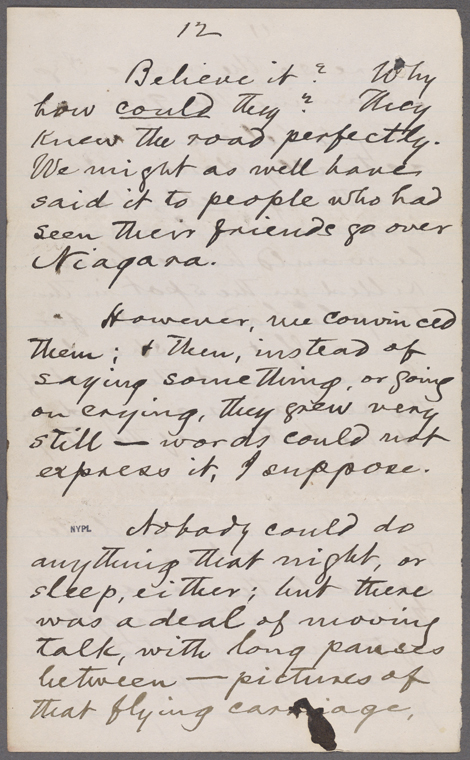 12
Believe it? Why
how could they? They
knew the road perfectly.
We might as well have
said it to people who had
seen their friends go over
Niagara.
However, we convinced
them; & then, instead of
saying something, or going
on crying, they grew very
still — words could not
express it, I suppose.
NYPL
Nobody could do
anything that night, or
sleep, either; but there
was a deal of moving
talk, with long pauses
between — pictures of
that flying carriage,